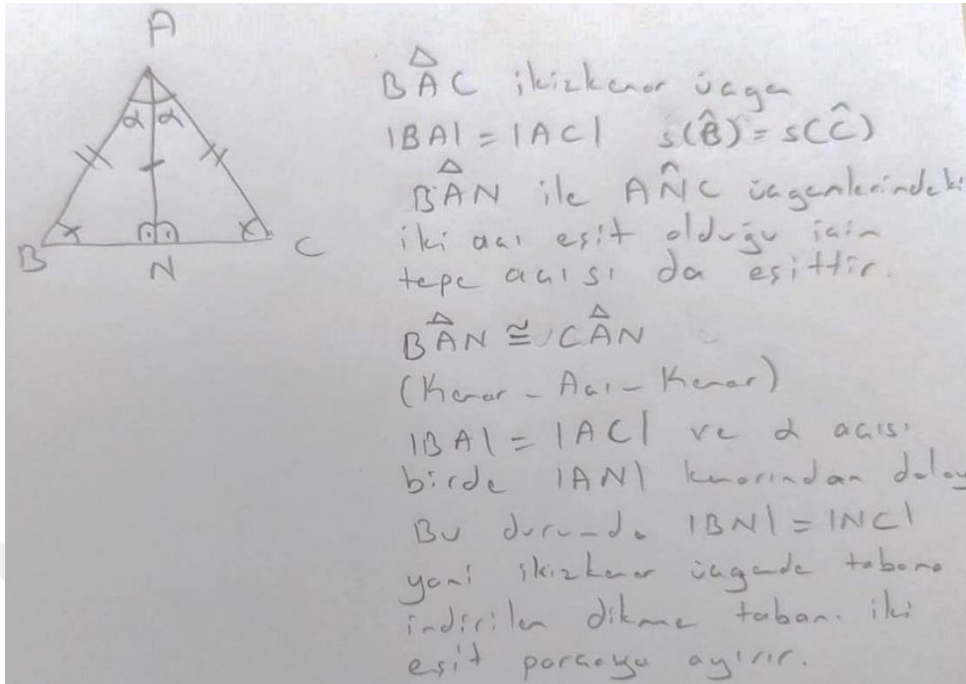 A
α α
B N C
BAC ikizkenar üçgen
|BA| = |AC| s(B̂) = s(Ĉ)
BAN ile ANC üçgenlerindeki
iki açı eşit olduğu için
tepe açısı da eşittir.
BAN ≅ CAN
(Kenar - Açı - Kenar)
|BA| = |AC| ve α açısı
birde |AN| kenarından dolay
Bu durumda |BN| = |NC|
yani ikizkenar üçgende tabana
indirilen dikme tabanı iki
eşit parçaya ayırır.